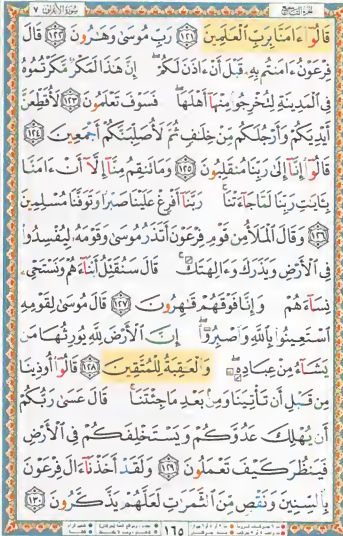 الجزء التاسع سورة الأعراف ٧
قَالُوٓا۟ ءَامَنَّا بِرَبِّ ٱلْعَٰلَمِينَ ١٢١ رَبِّ مُوسَىٰ وَهَٰرُونَ ١٢٢ قَالَ
فِرْعَوْنُ ءَامَنتُم بِهِۦ قَبْلَ أَنْ ءَاذَنَ لَكُمْ ۖ إِنَّ هَٰذَا لَمَكْرٌ مَّكَرْتُمُوهُ
فِى ٱلْمَدِينَةِ لِتُخْرِجُوا۟ مِنْهَآ أَهْلَهَا ۖ فَسَوْفَ تَعْلَمُونَ ١٢٣ لَأُقَطِّعَنَّ
أَيْدِيَكُمْ وَأَرْجُلَكُم مِّنْ خِلَٰفٍ ثُمَّ لَأُصَلِّبَنَّكُمْ أَجْمَعِينَ ١٢٤
قَالُوٓا۟ إِنَّآ إِلَىٰ رَبِّنَا مُنقَلِبُونَ ١٢٥ وَمَا تَنقِمُ مِنَّآ إِلَّآ أَنْ ءَامَنَّا
بِـَٔايَٰتِ رَبِّنَا لَمَّا جَآءَتْنَا ۚ رَبَّنَآ أَفْرِغْ عَلَيْنَا صَبْرًا وَتَوَفَّنَا مُسْلِمِينَ
١٢٦ وَقَالَ ٱلْمَلَأُ مِن قَوْمِ فِرْعَوْنَ أَتَذَرُ مُوسَىٰ وَقَوْمَهُۥ لِيُفْسِدُوا۟
فِى ٱلْأَرْضِ وَيَذَرَكَ وَءَالِهَتَكَ ۚ قَالَ سَنُقَتِّلُ أَبْنَآءَهُمْ وَنَسْتَحْىِۦ
نِسَآءَهُمْ وَإِنَّا فَوْقَهُمْ قَٰهِرُونَ ١٢٧ قَالَ مُوسَىٰ لِقَوْمِهِ
ٱسْتَعِينُوا۟ بِٱللَّهِ وَٱصْبِرُوٓا۟ ۖ إِنَّ ٱلْأَرْضَ لِلَّهِ يُورِثُهَا مَن
يَشَآءُ مِنْ عِبَادِهِۦ ۖ وَٱلْعَٰقِبَةُ لِلْمُتَّقِينَ ١٢٨ قَالُوٓا۟ أُوذِينَا
مِن قَبْلِ أَن تَأْتِيَنَا وَمِنۢ بَعْدِ مَا جِئْتَنَا ۚ قَالَ عَسَىٰ رَبُّكُمْ
أَن يُهْلِكَ عَدُوَّكُمْ وَيَسْتَخْلِفَكُمْ فِى ٱلْأَرْضِ
فَيَنظُرَ كَيْفَ تَعْمَلُونَ ١٢٩ وَلَقَدْ أَخَذْنَآ ءَالَ فِرْعَوْنَ
بِٱلسِّنِينَ وَنَقْصٍ مِّنَ ٱلثَّمَرَٰتِ لَعَلَّهُمْ يَذَّكَّرُونَ ١٣٠
١٦٥